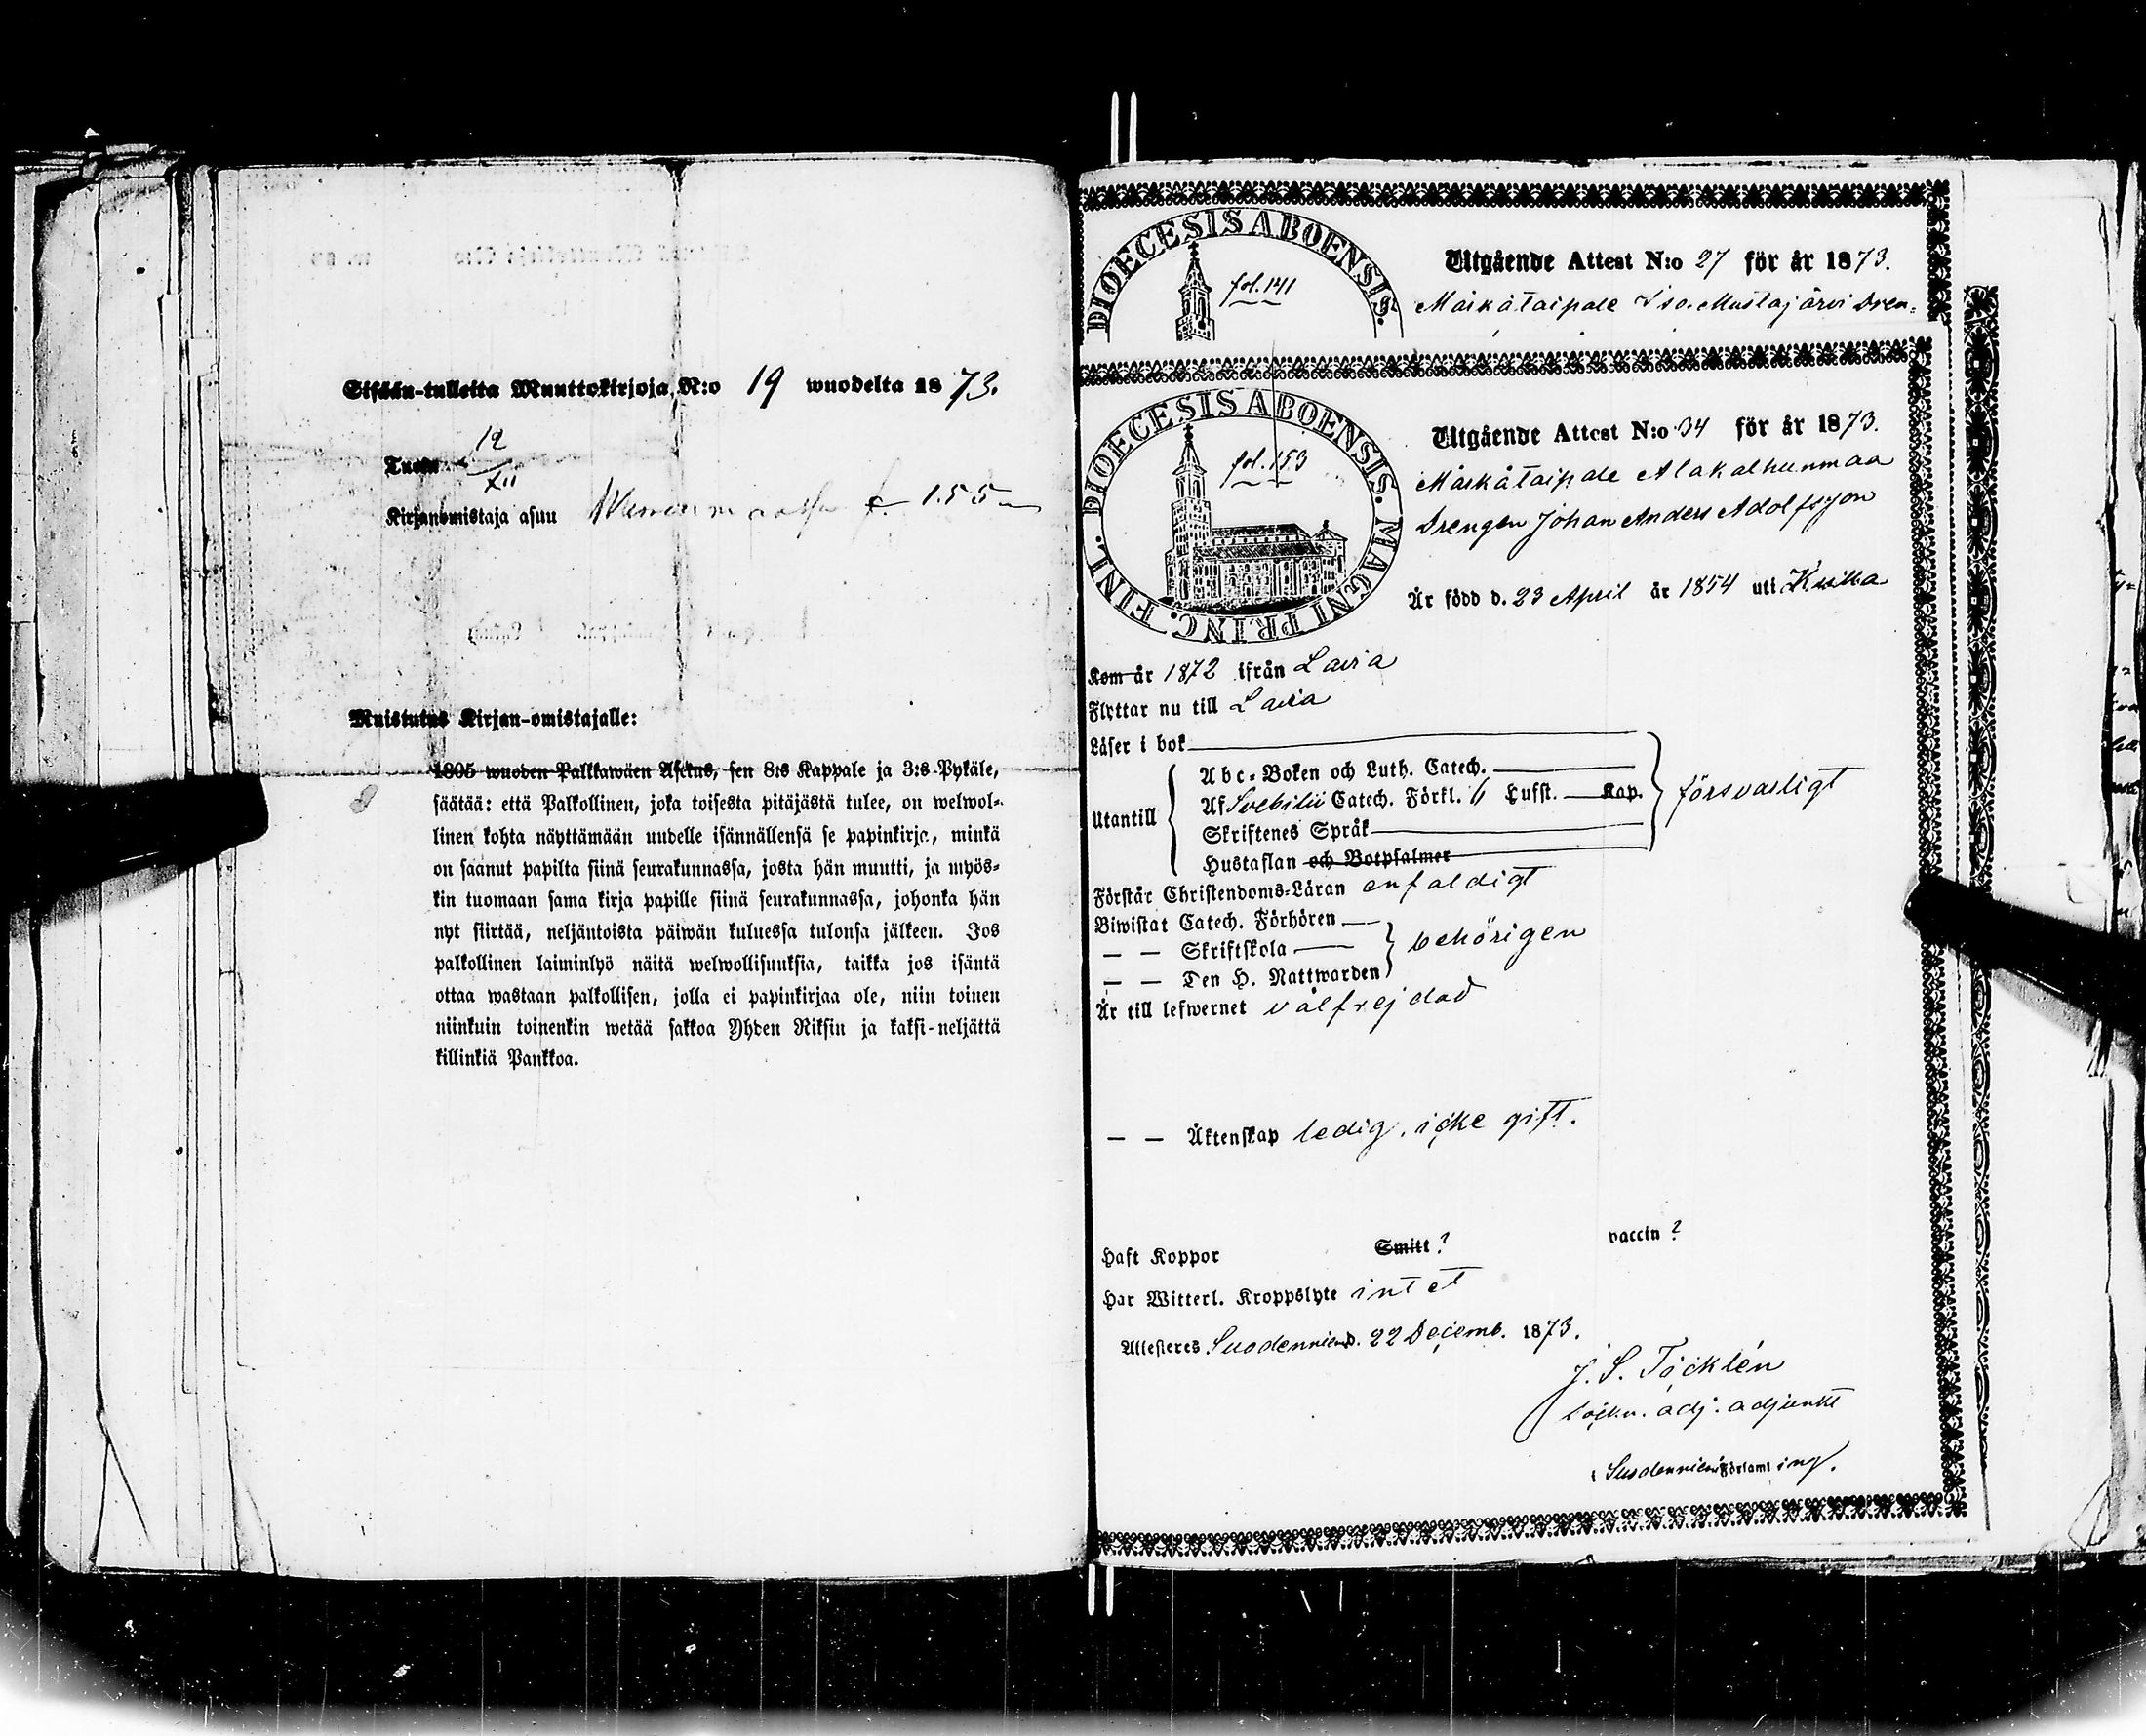 Sisään-tulleita Muuttokirjoja, N:o 19 wuodelta 1873.
Tuotu 12/XII
Kirjanomistaja asuu f. 155
Muistutus Kirjan-omistajalle:
1805 wuoden Palkkawäen Asetus, sen 8:s Kappale ja 3:s Pykäle,
säätää: että Palkollinen, joka toisesta pitäjästä tulee, on welwol-
linen kohta näyttämään uudelle isännällensä se papinkirja, minkä
on saanut papilta siinä seurakunnassa, josta hän muutti, ja myös-
kin tuomaan sama kirja papille siinä seurakunnassa, johonka hän
nyt siirtää, neljäntoista päiwän kuluessa tulonsa jälkeen. Jos
palkollinen laiminlyö näitä welwollisuuksia, taikka jos isäntä
ottaa wastaan palkollisen, jolla ei papinkirjaa ole, niin toinen
niinkuin toinenkin wetää sakkoa Yhden Riksin ja kaksi-neljättä
killinkiä Pankkoa.
DIOECESIS ABOENSIS.
fol. 141
Utgående Attest N:o 27 för år 1873.
Maikätaipale Iso-Mustajärvi Dren-
DIOECESIS ABOENSIS. MAGNI PRINC. FINL.
fol. 153
Utgående Attest N:o 34 för år 1873.
Maikätaipale Alakalhunmaa
Drengen Johan Anders Adolfsson
Är född d. 23 April år 1854 uti Kiikka
Kom år 1872 ifrån Lavia
Flyttar nu till Lavia
Läser i bok
Utantill
Abc-Boken och Luth. Catech.
Af Svebilii Catech. Förkl. 11 Lufst. Kap.
Skriftenes Språk
Hustaflan och Botpsalmer
försvarligt
Förstår Christendoms-Läran enfaldigt
Biwistat Catech. Förhören
— — Skriftskola
— — Den H. Nattwarden
behörigen
Är till lefwernet välfrejdad
— — Äktenskap ledig, icke gift.
Haft Koppor Smitt? vaccin?
Har Witterl. Kroppslyte intet
Attesteres Suodenniemi d. 22 Decemb. 1873.
J. S. Täcklén
sockn. adj. adjunkt
Suodenniemi Förlaml ing.